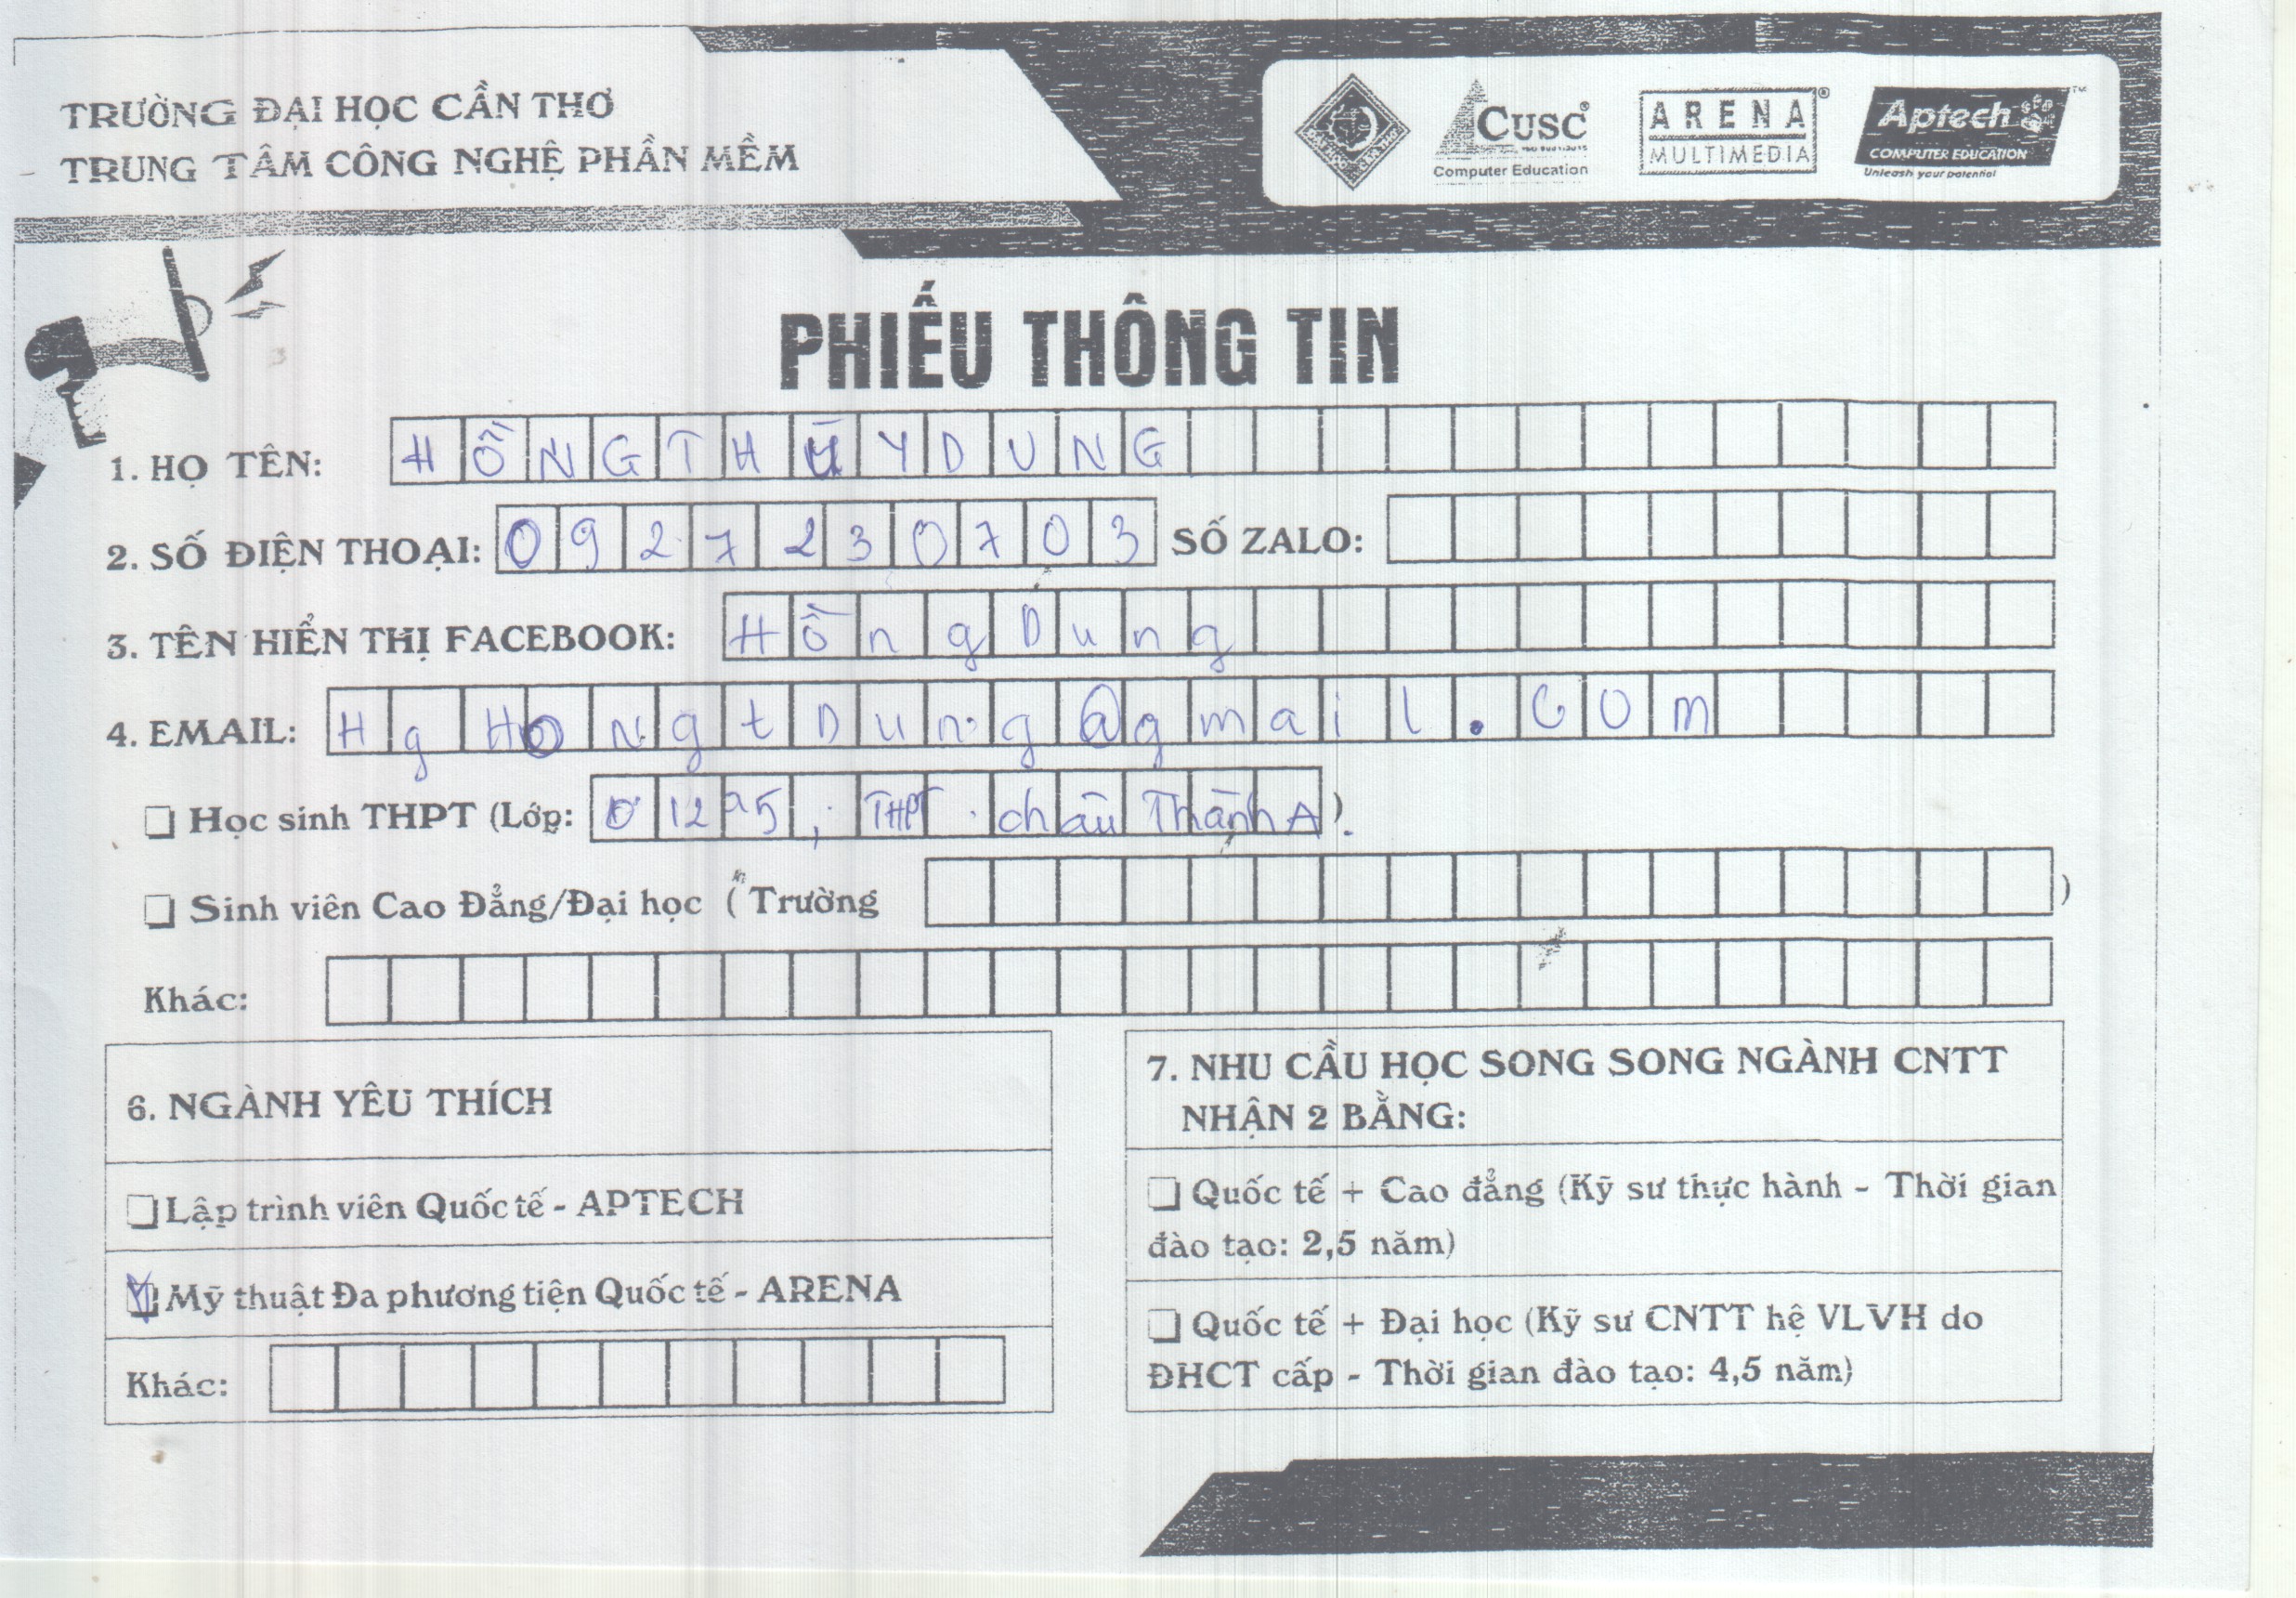 TRƯỜNG ĐẠI HỌC CẦN THƠ
TRUNG TÂM CÔNG NGHỆ PHẦN MỀM
CUSC®
Computer Education
ARENA®
MULTIMEDIA
Aptech™
COMPUTER EDUCATION
Unleash your potential
PHIẾU THÔNG TIN
1. HỌ TÊN: HỒNG THÙY DUNG
2. SỐ ĐIỆN THOẠI: 0927230703 SỐ ZALO:
3. TÊN HIỂN THỊ FACEBOOK: Hồng Dung
4. EMAIL: HgHongtDung@gmail.com
❏ Học sinh THPT (Lớp: 12a5, THPT châu Thành A).
❏ Sinh viên Cao Đẳng/Đại học (Trường )
Khác:
6. NGÀNH YÊU THÍCH
❏ Lập trình viên Quốc tế - APTECH
☑ Mỹ thuật Đa phương tiện Quốc tế - ARENA
Khác:
7. NHU CẦU HỌC SONG SONG NGÀNH CNTT
NHẬN 2 BẰNG:
❏ Quốc tế + Cao đẳng (Kỹ sư thực hành - Thời gian
đào tạo: 2,5 năm)
❏ Quốc tế + Đại học (Kỹ sư CNTT hệ VLVH do
ĐHCT cấp - Thời gian đào tạo: 4,5 năm)